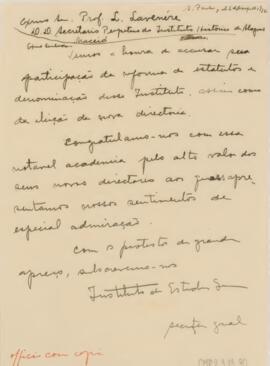 S. Paulo,
Exmo Snr. Prof. L. Lavenère
D.D. Secretario Perpetuo do Instituto Historico de Alagoas
Maceió
Temos a honra de accusar sua
participação da reforma de estatutos e
denominação desse Instituto, assim como
da eleição da nova directoria.
Congratulamo-nos com essa
notavel academia pelo alto valor dos
seus novos directores aos quaes apre-
sentamos nossos sentimentos de
especial admiração.
Com os protestos de grande
apreço, subscrevemo-nos
Instituto de Estudos
secretº geral
officio com copia